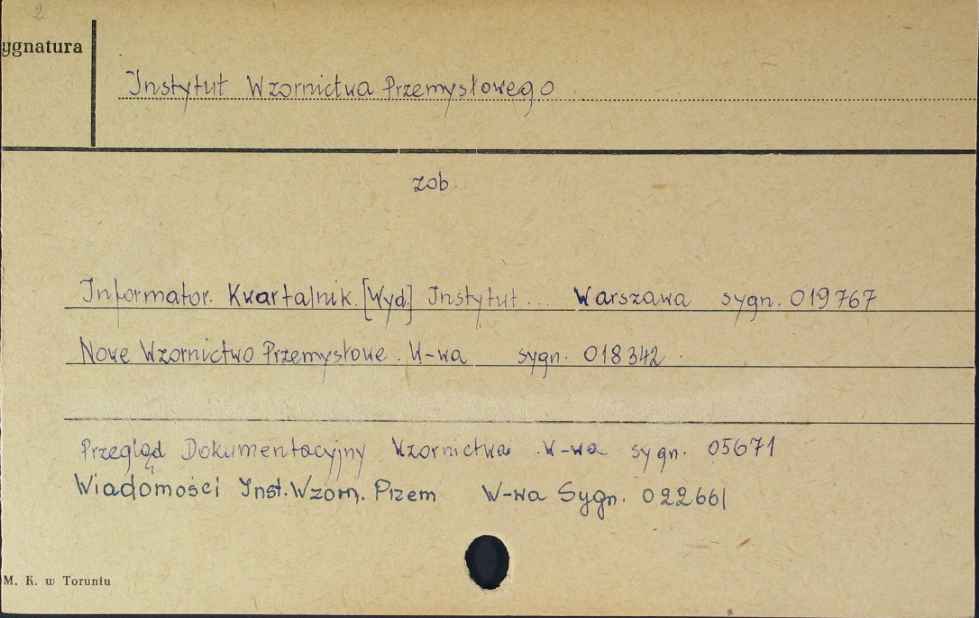 2
ygnatura
Instytut Wzornictwa Przemysłowego
zob.
Informator. Kwartalnik. [Wyd] Instytut ... Warszawa sygn. 019767
Nowe Wzornictwo Przemysłowe. W-wa sygn. 018342.
Przegląd Dokumentacyjny Wzornictwa. W-wa sygn. 05671
Wiadomości Inst. Wzorn. Przem W-wa Sygn. 022661
M. K. w Toruniu